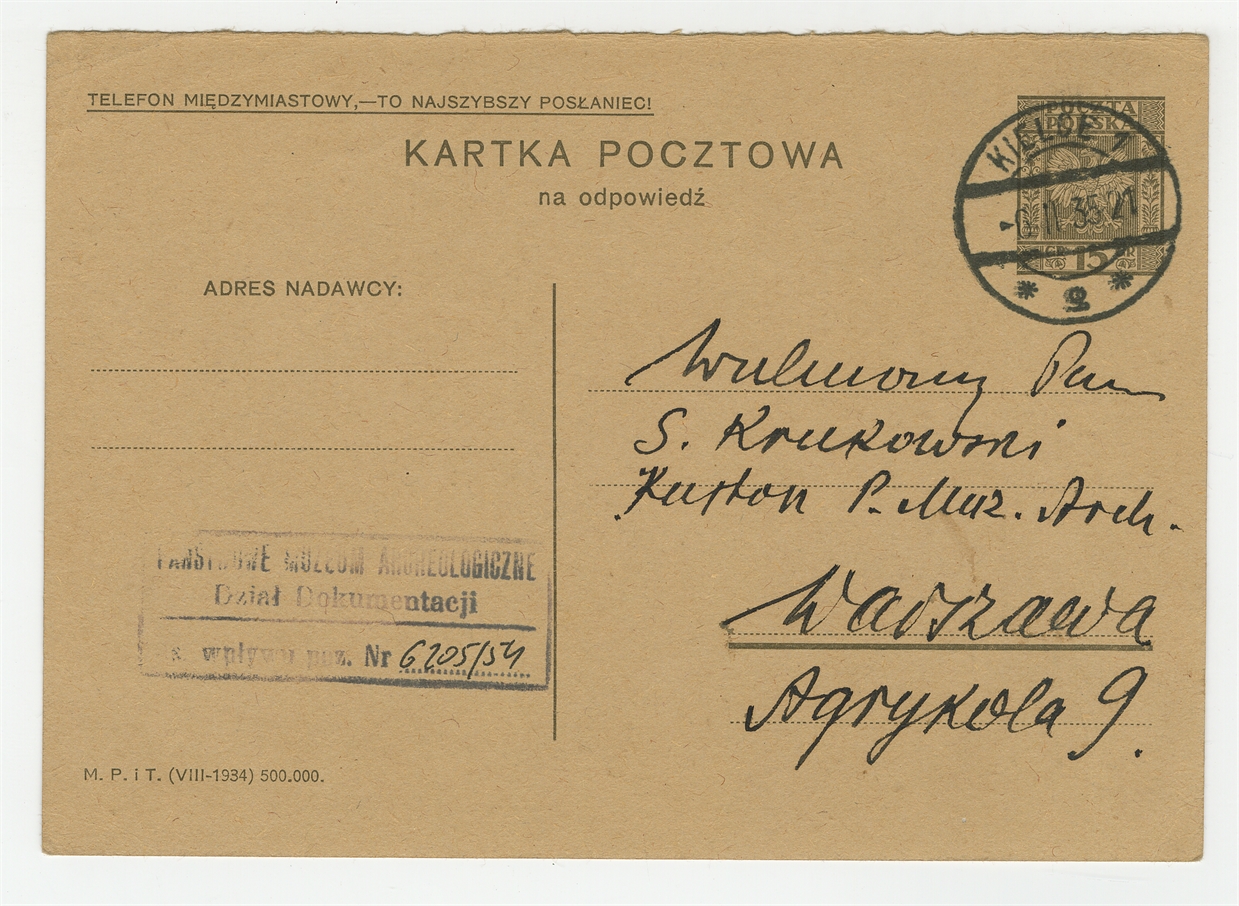 TELEFON MIĘDZYMIASTOWY,—TO NAJSZYBSZY POSŁANIEC!
KARTKA POCZTOWA
na odpowiedź
POCZTA
POLSKA
KIELCE 1
II 35 21
GR 15 GR
ADRES NADAWCY:
Wielmożny Pan
S. Krukowski
Kustosz P. Muz. Arch.
Warszawa
Agrykola 9.
PAŃSTWOWE MUZEUM ARCHEOLOGICZNE
Dział Dokumentacji
wpływu poz. Nr 6205/54
M. P. i T. (VIII-1934) 500.000.